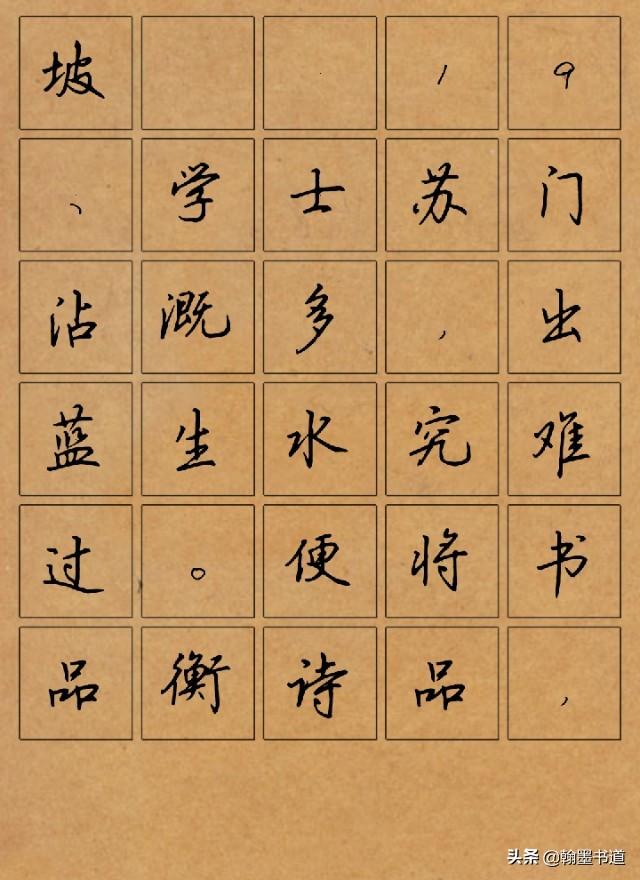 坡 1 9
、学士苏门
沾溉多，出
蓝生水究难
过。便将书
品衡诗品，
头条 @翰墨书道